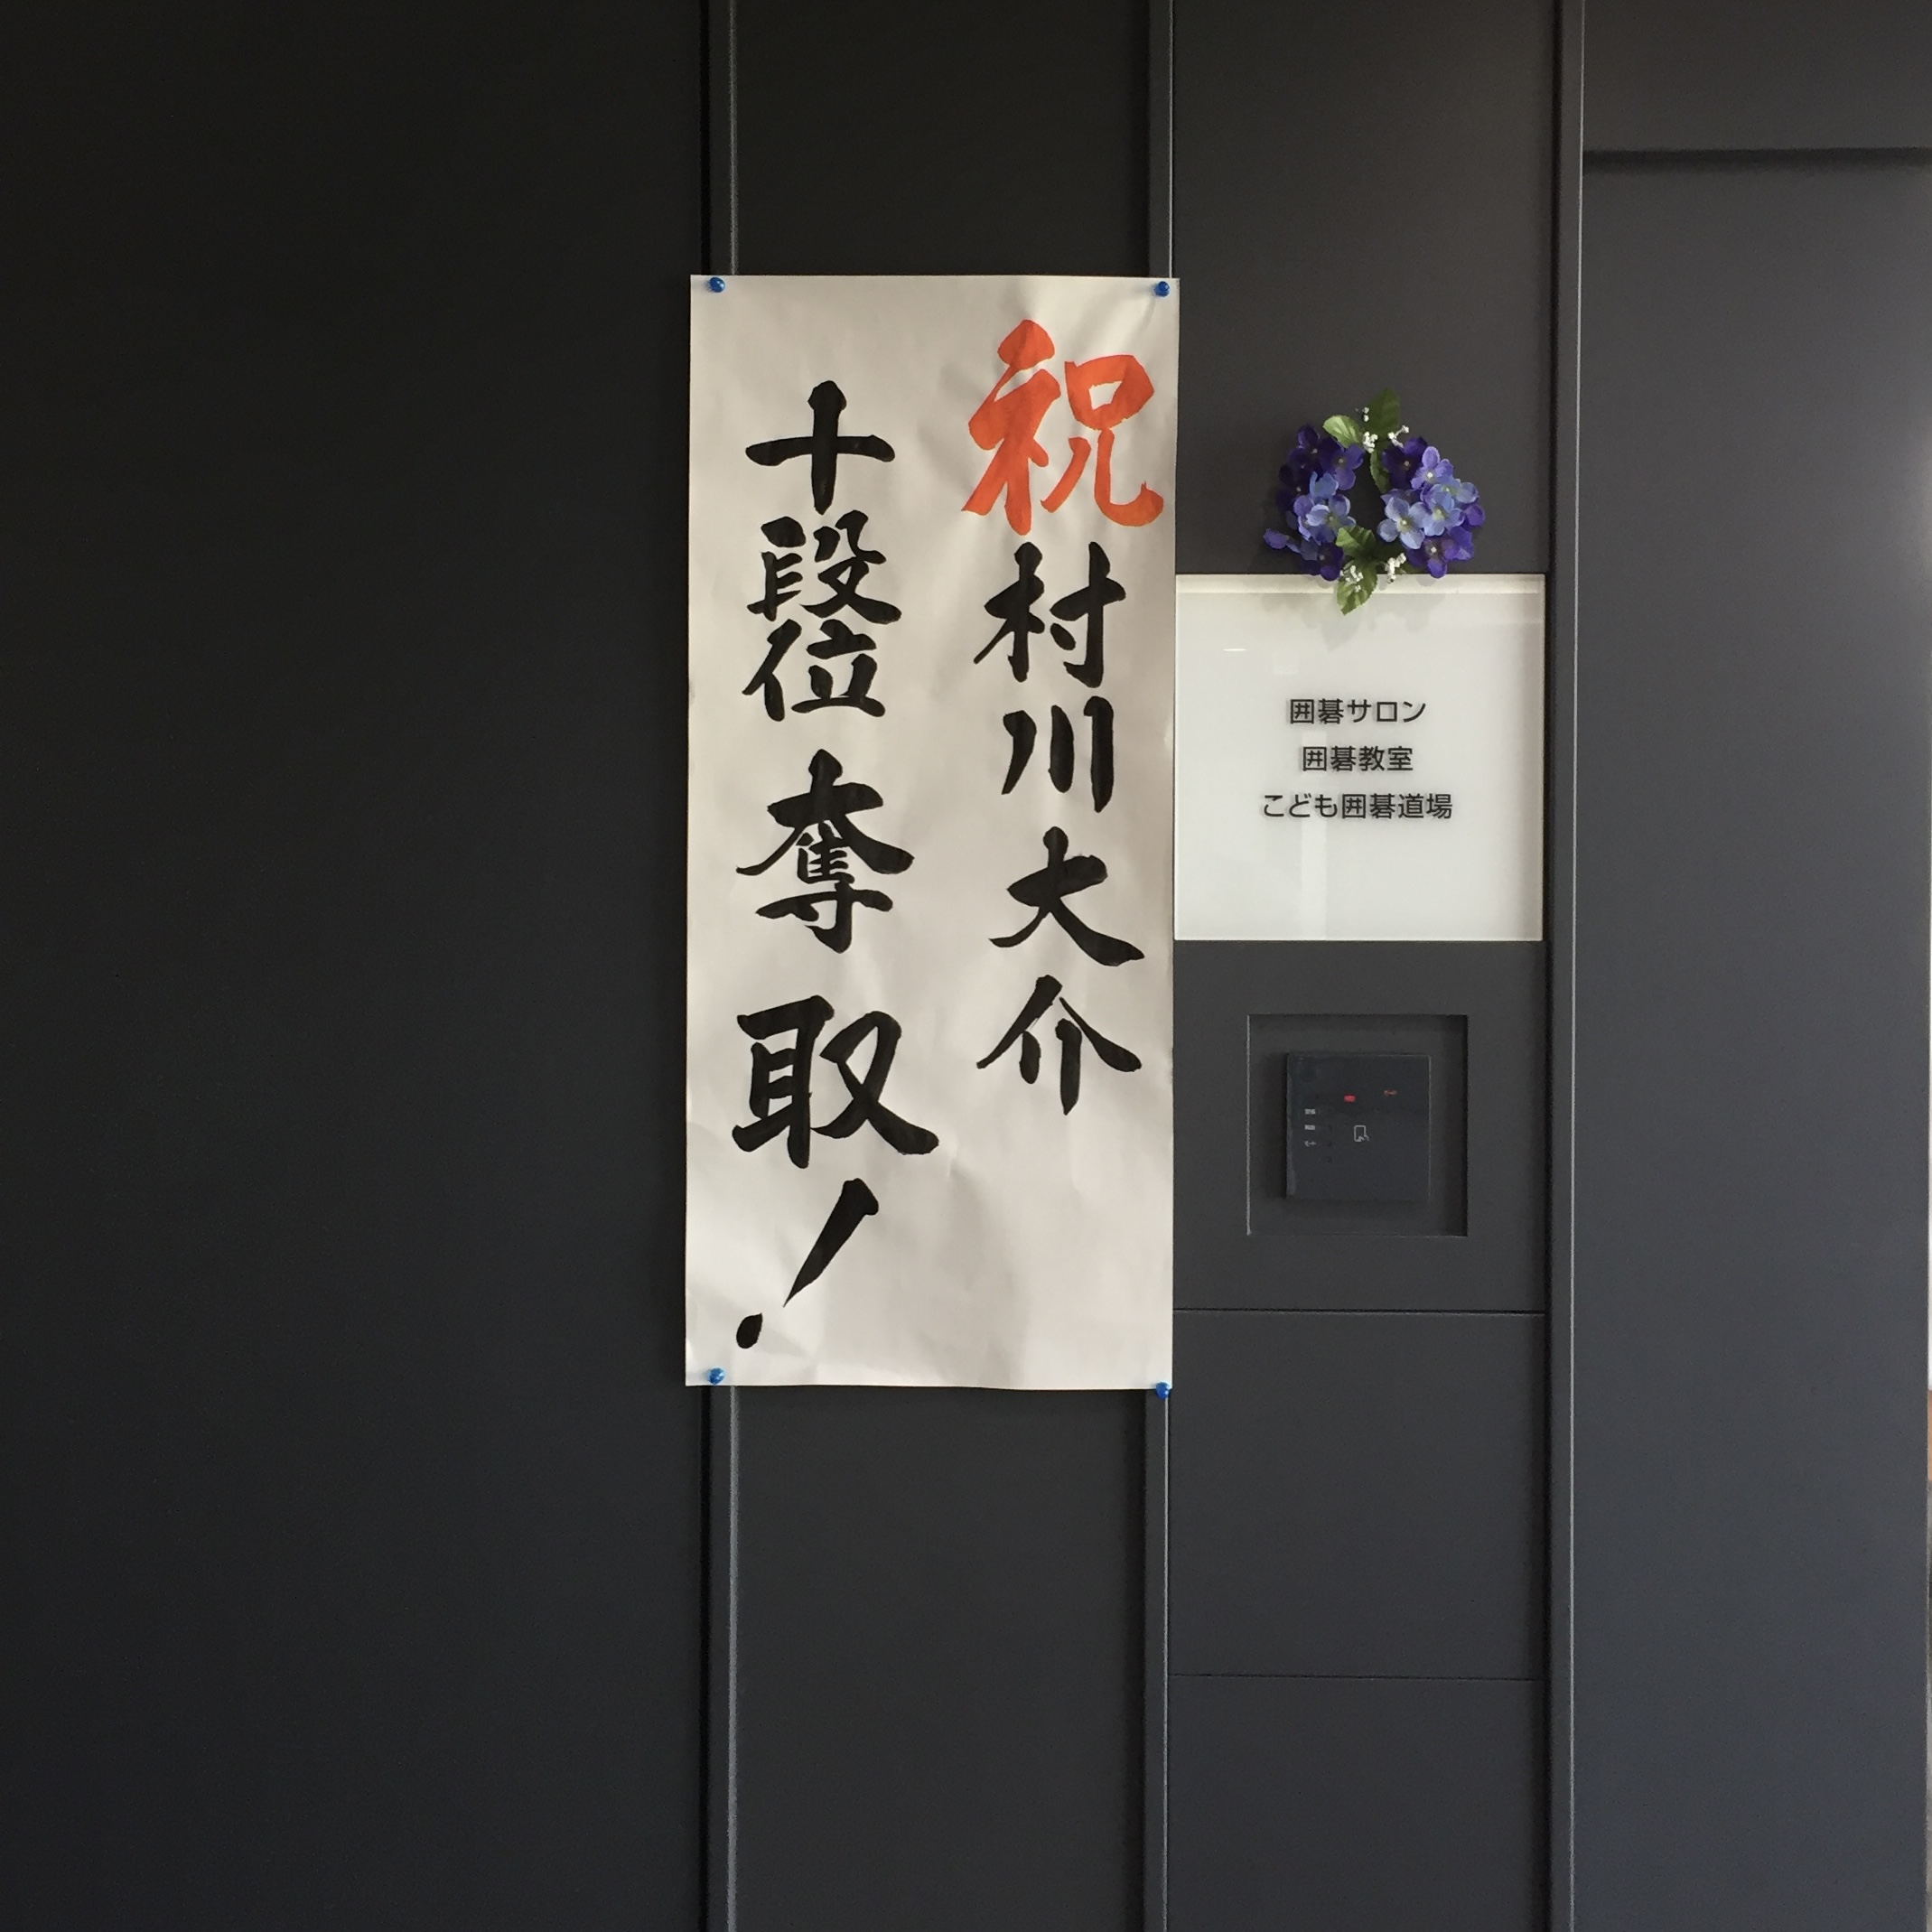 祝 村川大介
十段位 奪取！
囲碁サロン
囲碁教室
こども囲碁道場